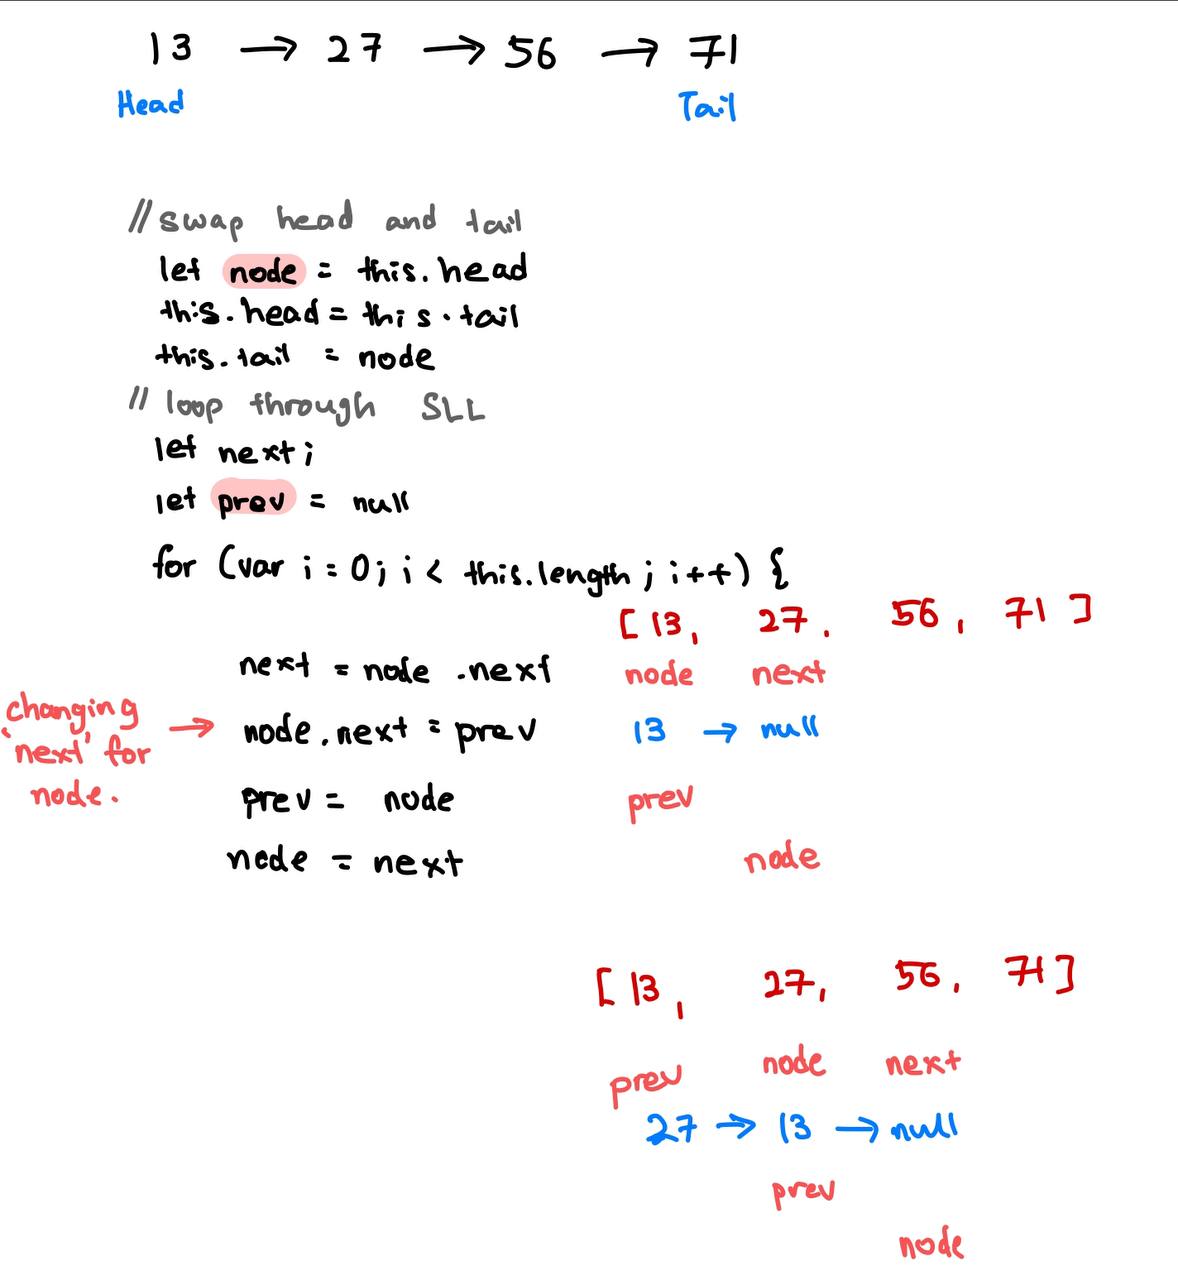 13 → 27 → 56 → 71
Head Tail
// swap head and tail
let node = this.head
this.head = this.tail
this.tail = node
// loop through SLL
let next;
let prev = null
for (var i = 0; i < this.length; i++) {
[13, 27, 56, 71]
next = node.next
node next
changing
'next' for
node.
→ node.next = prev
13 → null
prev = node
prev
node = next
node
[13, 27, 56, 71]
prev node next
27 → 13 → null
prev
node